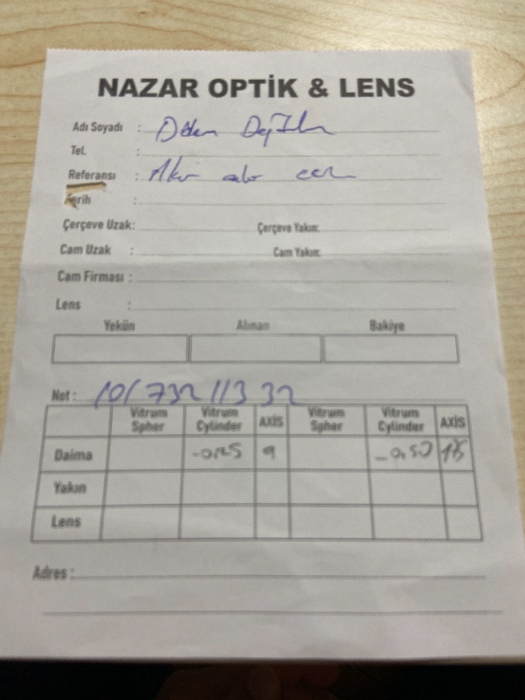 NAZAR OPTİK & LENS
Adı Soyadı :
Tel. :
Referansı :
Tarih :
Çerçeve Uzak: Çerçeve Yakın:
Cam Uzak : Cam Yakın:
Cam Firması :
Lens :
Yekün Alınan Bakiye
Not :
Vitrum Spher Vitrum Cylinder AXİS Vitrum Spher Vitrum Cylinder AXİS
Daima -0,25 9 -0,50
Yakın
Lens
Adres :